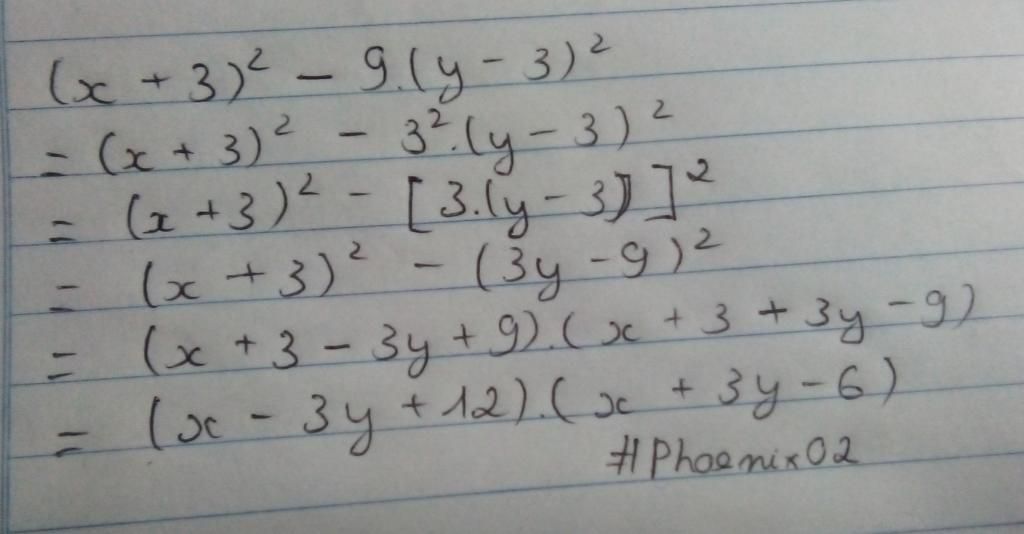 (x + 3)² - 9.(y - 3)²
= (x + 3)² - 3².(y - 3)²
= (x + 3)² - [3.(y - 3)]²
= (x + 3)² - (3y - 9)²
= (x + 3 - 3y + 9).(x + 3 + 3y - 9)
= (x - 3y + 12).(x + 3y - 6)
#Phoenix02